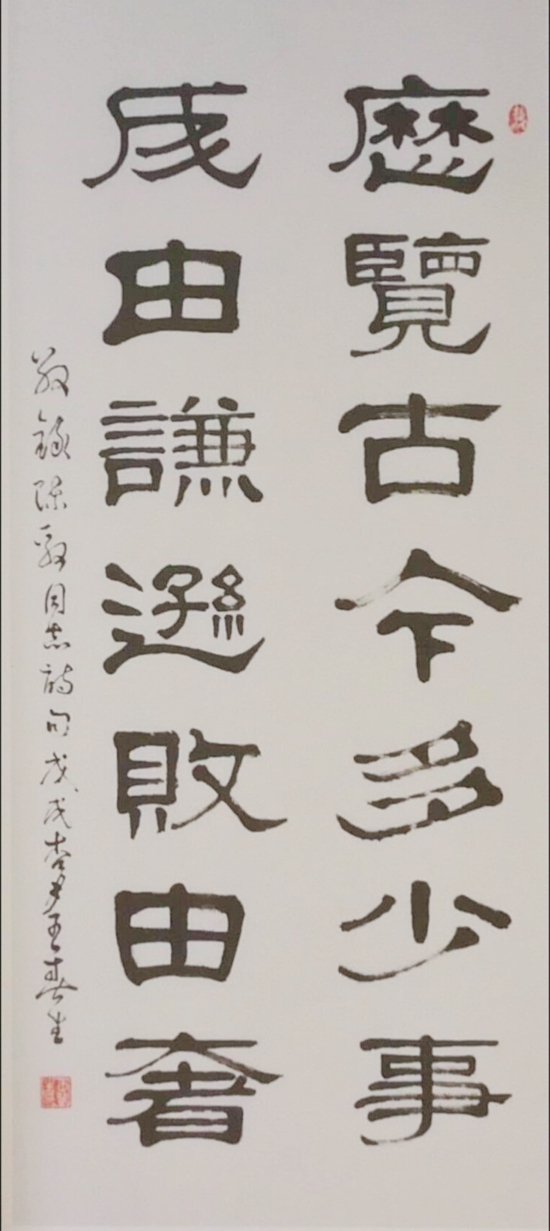 歷覽古今多少事
成由謙遜敗由奢
敬錄陳毅同志詩句戊戌杏月王春生